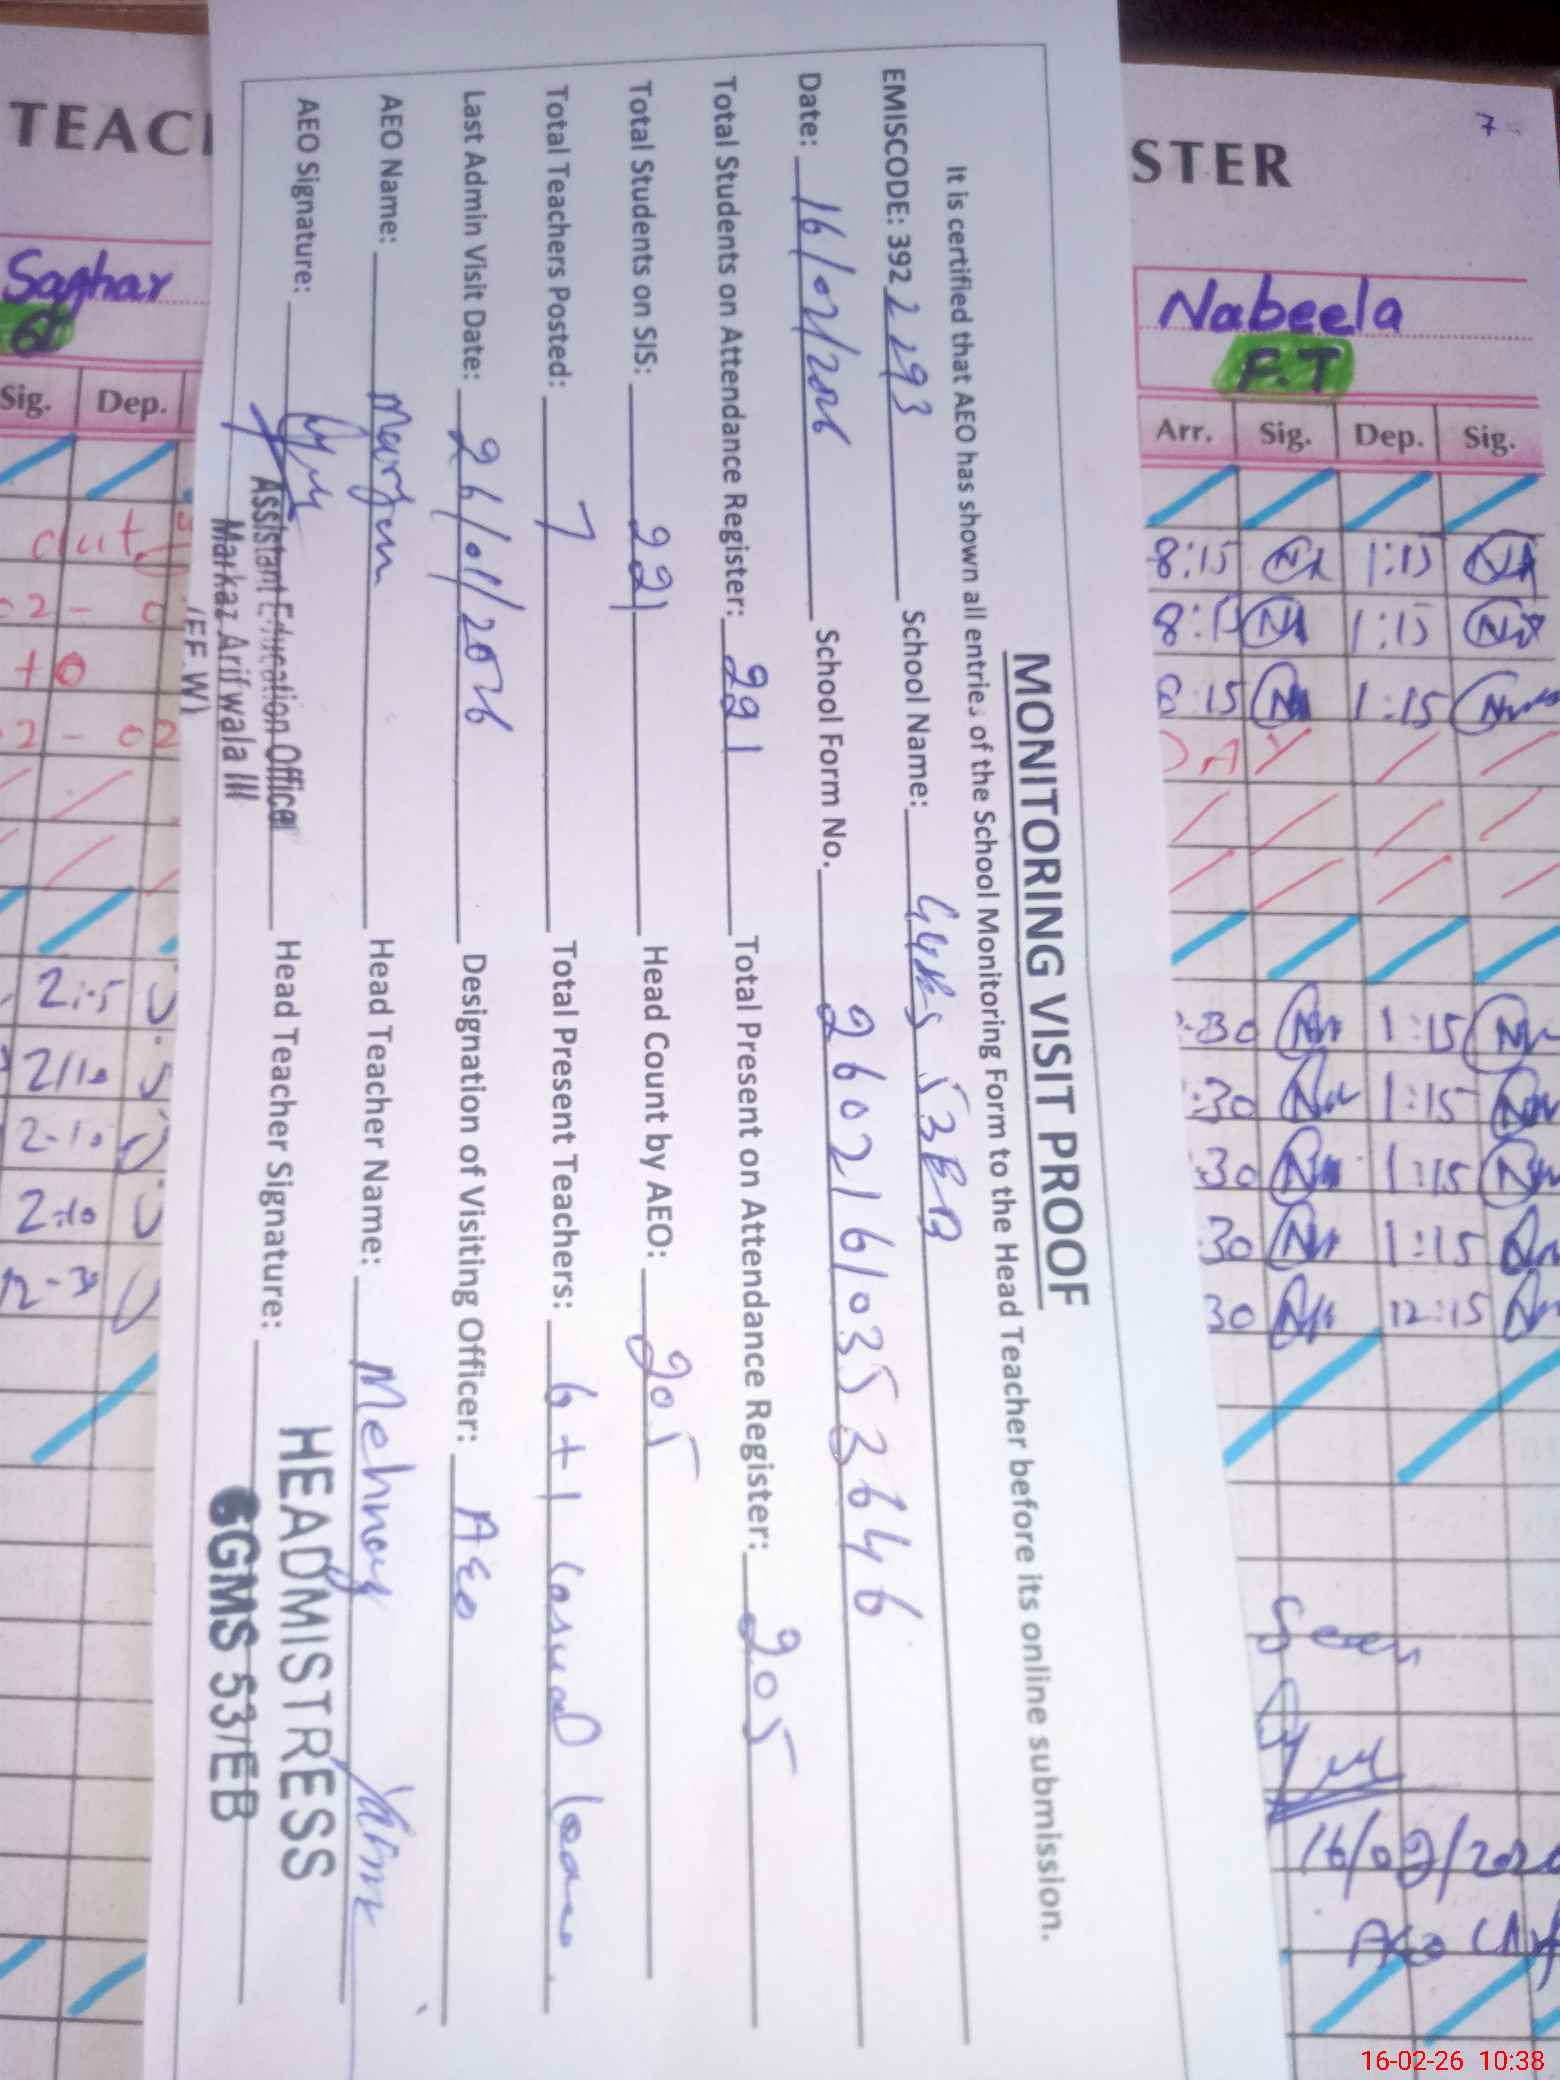 MONITORING VISIT PROOF
It is certified that AEO has shown all entries of the School Monitoring Form to the Head Teacher before its online submission.
EMISCODE: 392 2293 School Name: 53 EB
Date: 16/02/2026 School Form No. 26021610353646
Total Students on Attendance Register: 221 Total Present on Attendance Register: 205
Total Students on SIS: 221 Head Count by AEO: 205
Total Teachers Posted: 7 Total Present Teachers: 6+1 Casual leave
Last Admin Visit Date: 26/01/2026 Designation of Visiting Officer: AEO
AEO Name: Head Teacher Name:
AEO Signature: Head Teacher Signature:
Assistant Education Officer
Markaz Arifwala III
(EE.W)
HEADMISTRESS
GGMS 53/EB
TEAC
STER
Saghar
Sig. Dep.
2:10
Nabeela
F.T
Arr. Sig. Dep. Sig.
8:15 1:15
8:15 1:15
8:15 1:15
30 1:15
30 1:15
30 1:15
30 1:15
30 12:15
Seen
16/02/202
AEO
16-02-26 10:38